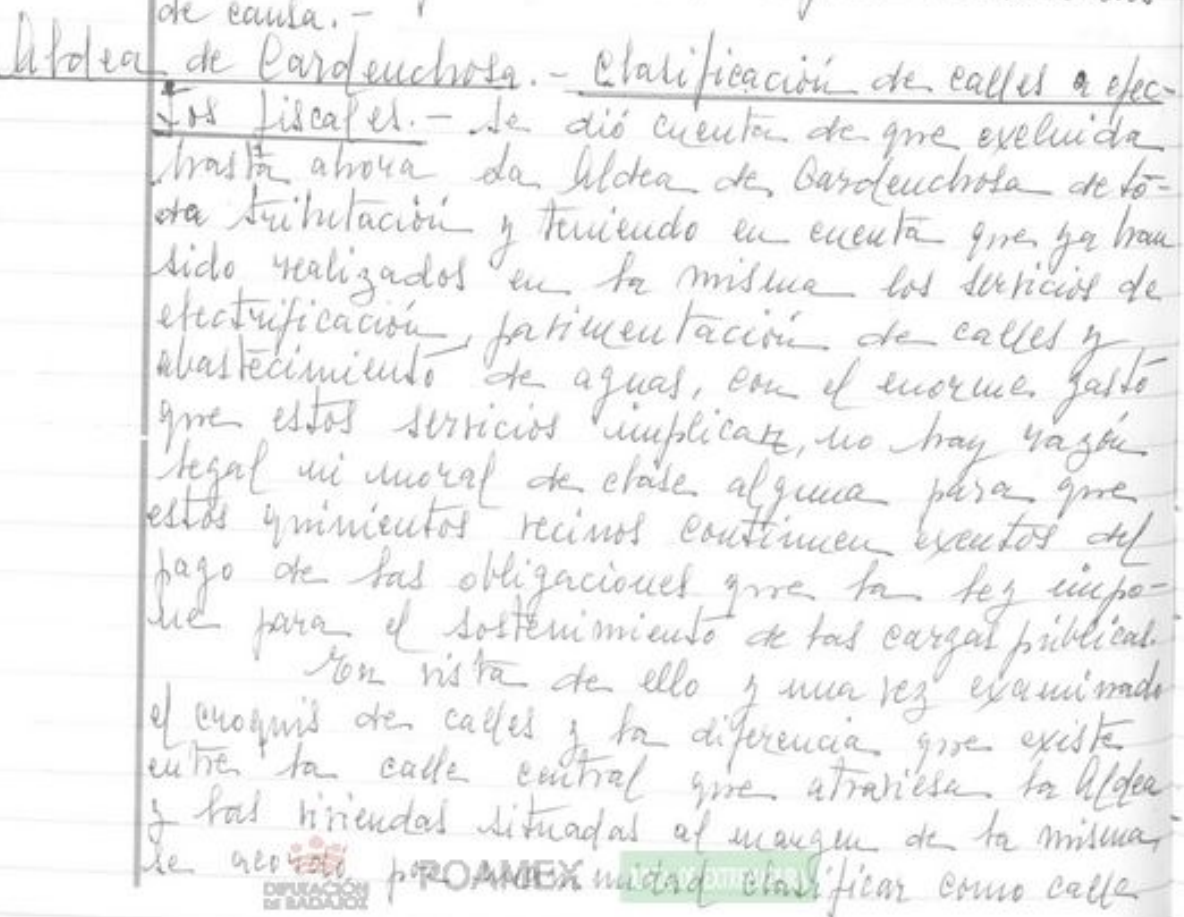 de causa.-
Aldea de Cardenchosa.- Clasificación de calles a efec-
tos fiscales.- Se dió cuenta de que excluida
hasta ahora la Aldea de Cardenchosa de tó-
da tributación y teniendo en cuenta que ya han
sido realizados en la misma los servicios de
electrificación, pavimentación de calles y
abastecimiento de aguas, con el enorme gasto
que estos servicios implican, no hay razón
legal ni moral de clase alguna para que
estos quinientos vecinos continuen exentos del
pago de las obligaciones que la ley impo-
ne para el sostenimiento de las cargas públicas.
En vista de ello y una vez examinado
el croquis de calles y la diferencia que existe
entre la calle central que atraviesa la Aldea
y las viviendas situadas al margen de la misma,
se acordó por unanimidad clasificar como calle
DIPUTACIÓN DE BADAJOZ
ROAMEX